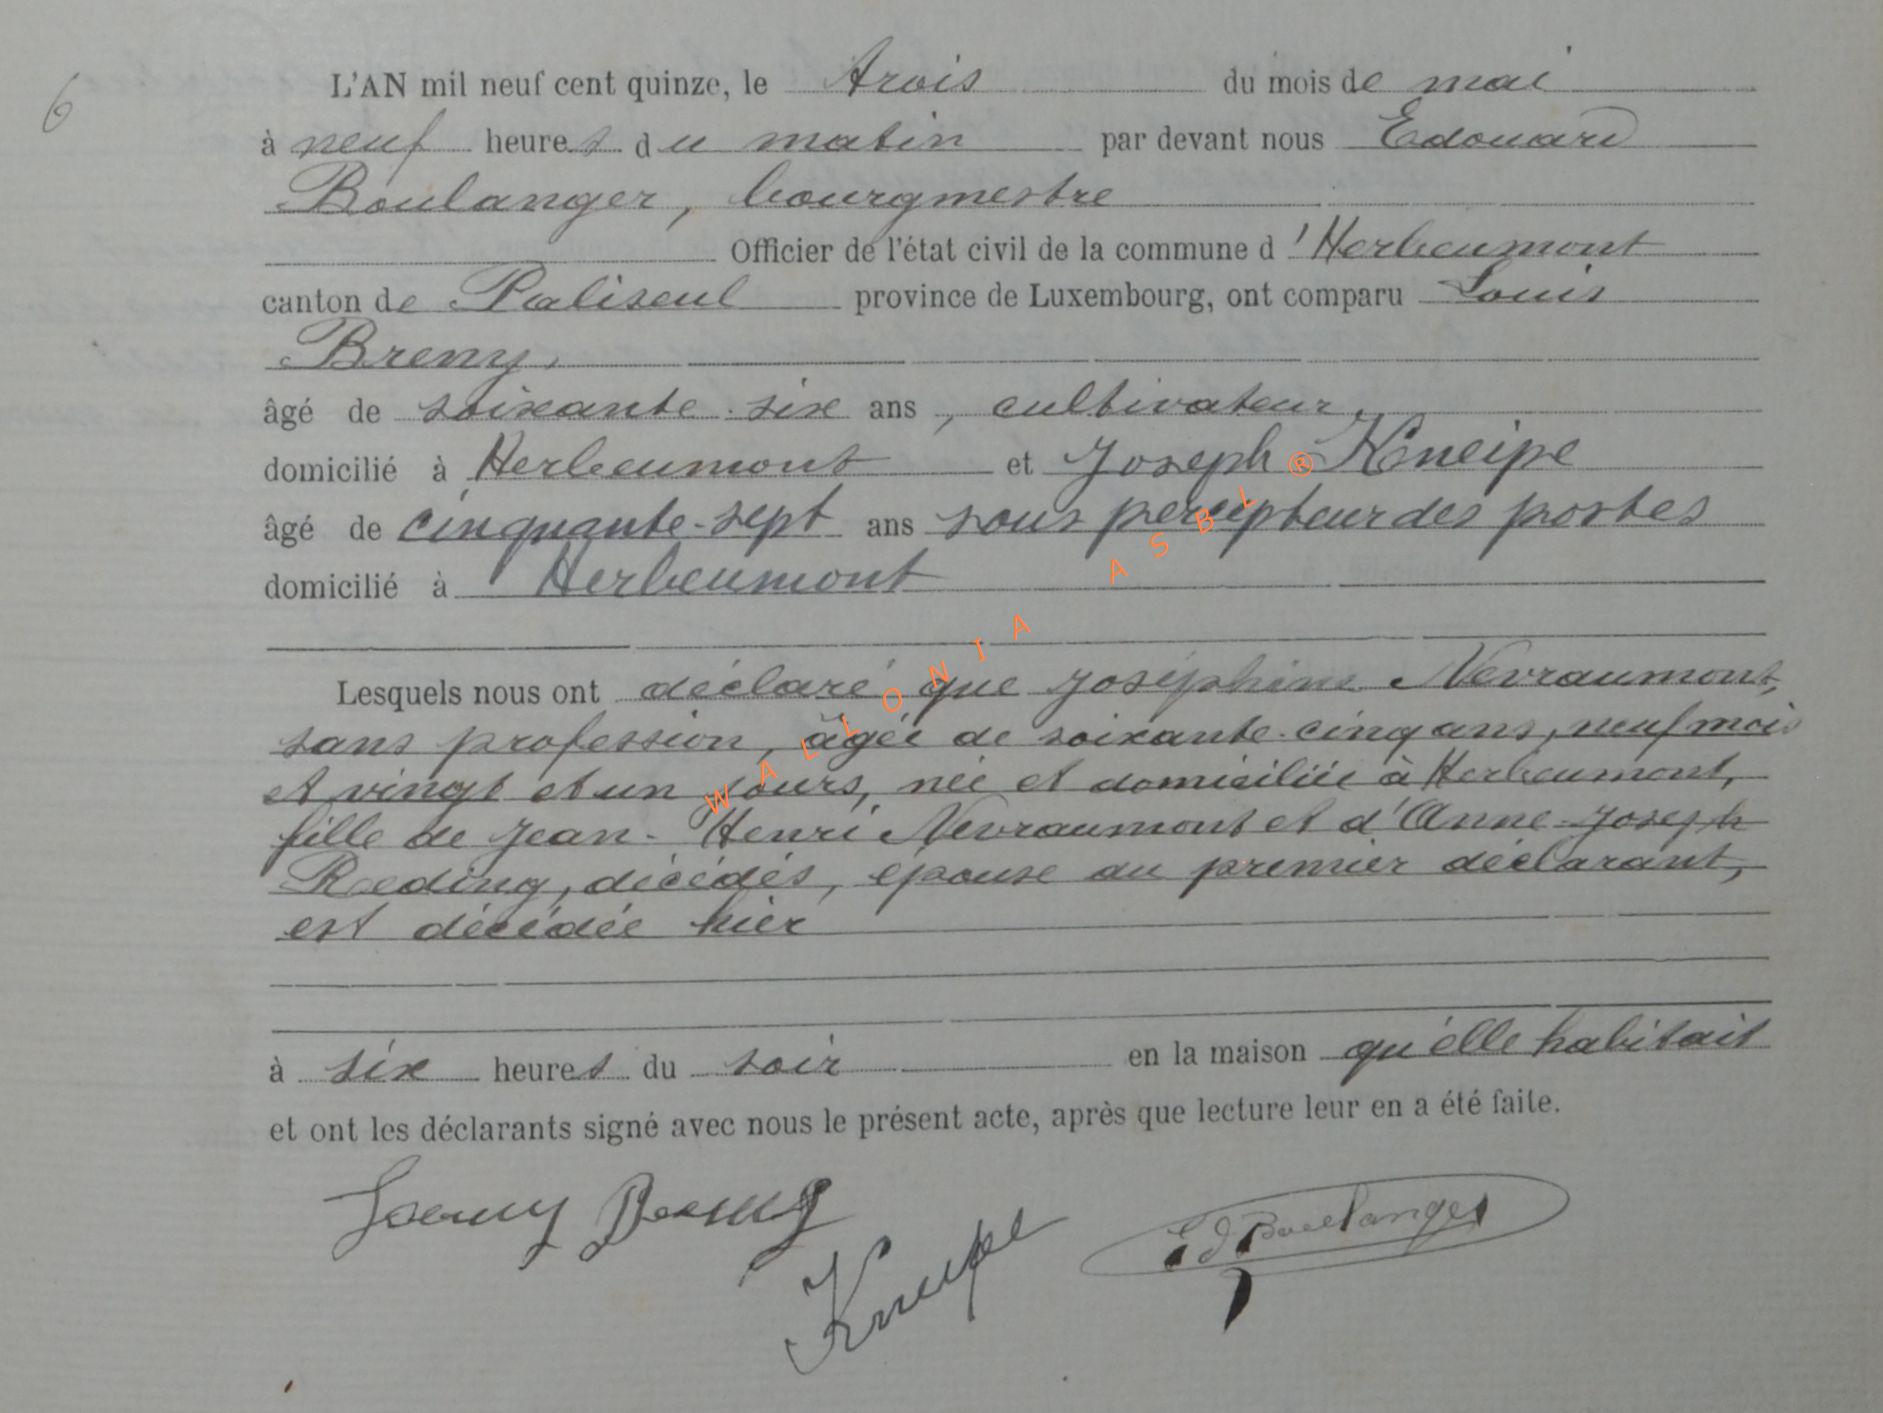 6
L'AN mil neuf cent quinze, le trois du mois de mai
à neuf heures du matin par devant nous Edouard
Boulanger, bourgmestre
Officier de l'état civil de la commune d'Herbeumont
canton de Paliseul province de Luxembourg, ont comparu Louis
Bremy,
âgé de soixante-six ans, cultivateur,
domicilié à Herbeumont et Joseph Kneipe
âgé de cinquante-sept ans sous percepteur des postes
domicilié à Herbeumont
Lesquels nous ont déclaré que Joséphine Nevraumont,
sans profession, âgée de soixante-cinq ans, neuf mois
et vingt et un jours, née et domiciliée à Herbeumont,
fille de Jean-Henri Nevraumont et d'Anne-Joseph
Rœding, décédés, épouse du premier déclarant,
est décédée hier
à six heures du soir en la maison qu'elle habitait
et ont les déclarants signé avec nous le présent acte, après que lecture leur en a été faite.
Kneipe
Ed Boulanger
WALLONIA ASBL ®